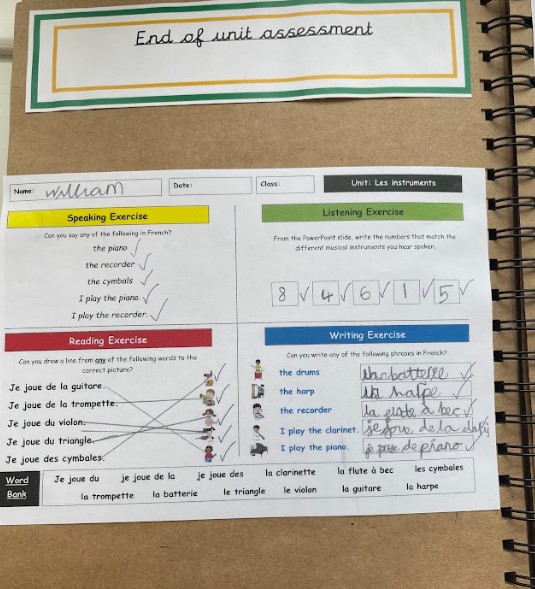 End of unit assessment
Name: William
Date:
Class:
Unit: Les instruments
Speaking Exercise
Can you say any of the following in French?
the piano
the recorder
the cymbals
I play the piano.
I play the recorder.
Listening Exercise
From the PowerPoint slide, write the numbers that match the
different musical instruments you hear spoken.
8 4 6 1 5
Reading Exercise
Can you draw a line from any of the following words to the
correct picture?
Je joue de la guitare.
Je joue de la trompette.
Je joue du violon.
Je joue du triangle.
Je joue des cymbales.
Writing Exercise
Can you write any of the following phrases in French?
the drums batterie
the harp harpe
the recorder la flute à bec
I play the clarinet. je joue de la
I play the piano. je joue de piano
Word
Bank
Je joue du je joue de la je joue des la clarinette la flute à bec les cymbales
la trompette la batterie le triangle le violon la guitare la harpe